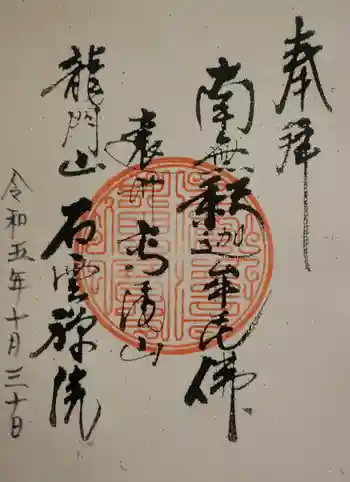 奉拝
南無釈迦牟尼佛
山
龍門山 石雲禅院
令和五年十月三十日